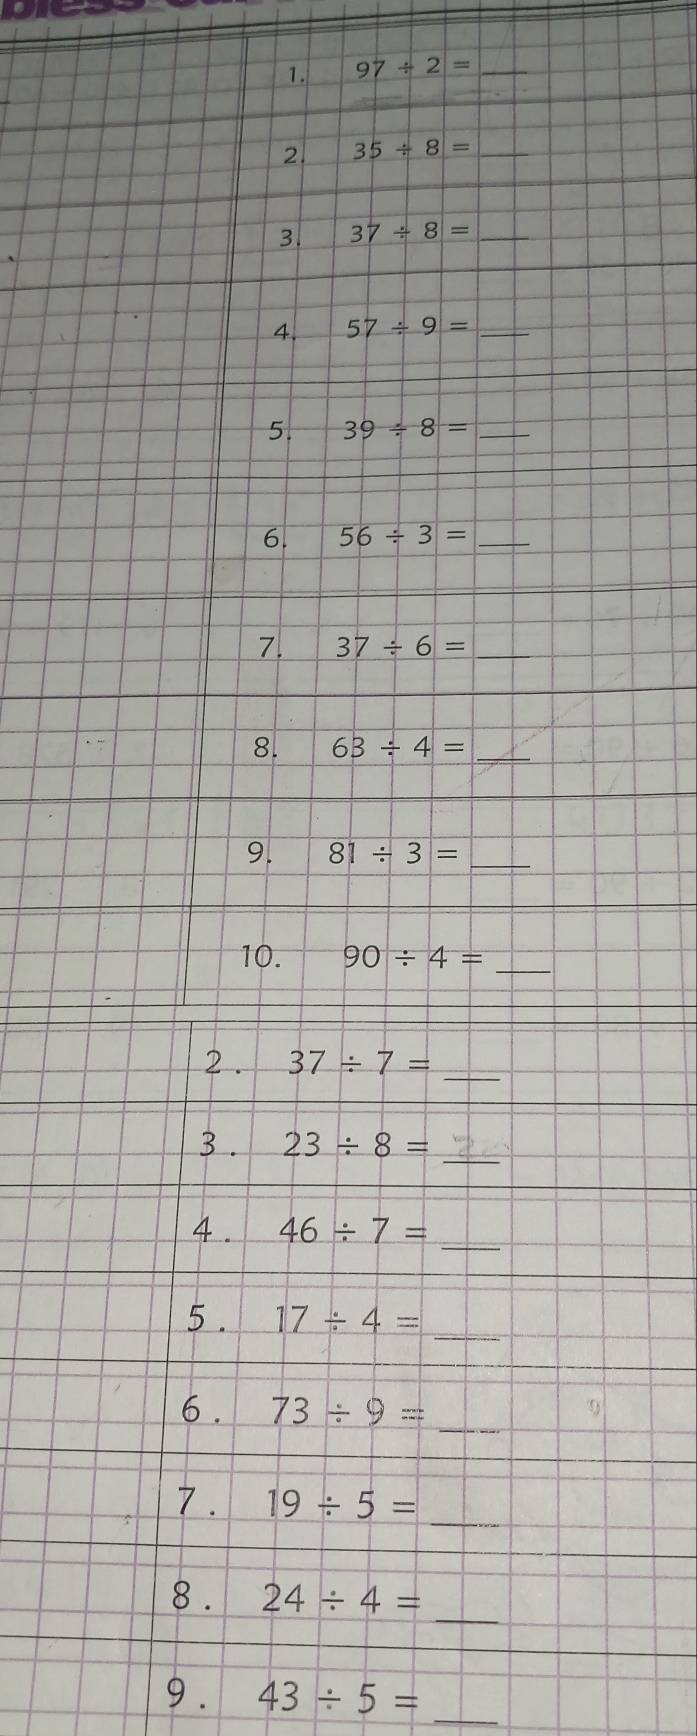 1. 97 ÷ 2 = ___
2. 35 ÷ 8 = ___
3. 37 ÷ 8 = ___
4. 57 ÷ 9 = ___
5. 39 ÷ 8 = ___
6. 56 ÷ 3 = ___
7. 37 ÷ 6 = ___
8. 63 ÷ 4 = ___
9. 81 ÷ 3 = ___
10. 90 ÷ 4 = ___
2. 37 ÷ 7 = ___
3. 23 ÷ 8 = ___
4. 46 ÷ 7 = ___
5. 17 ÷ 4 = ___
6. 73 ÷ 9 = ___
7. 19 ÷ 5 = ___
8. 24 ÷ 4 = ___
9. 43 ÷ 5 = ___